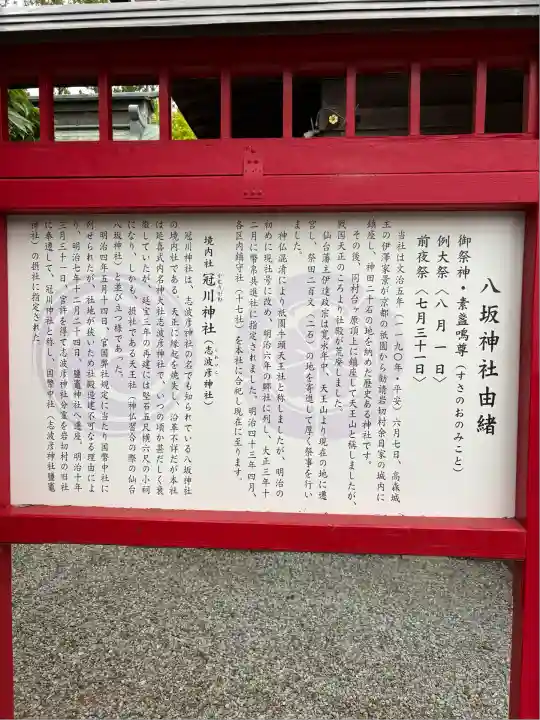 八坂神社由緒
御祭神・素盞嗚尊（すさのおのみこと）
例大祭〈八月一日〉
前夜祭〈七月三十一日〉
当社は文治五年（一一九〇年・平安）六月七日、高森城
主の伊澤家景が京都の祇園から勧請岩切村余目家の城内に
鎮座し、神田二十石の地を納めた歴史ある神社です。
その後、同村台ヶ原頂上に鎮座して天王山と称しましたが、
戦国天正のころより社殿が荒廃しました。
仙台藩主伊達政宗は寛永年中、天王山より現在の地に遷
宮し、祭田二百文（二石）の地を寄進して厚く祭事を行い
ました。
神仏混淆により祇園牛頭天王社と称しましたが、明治の
初めに現社号に改め、明治六年の郷社に列し、大正三年十
二月に幣帛共進社に指定されました。明治四十三年四月、
各区内鎮守社（十七社）を本社に合祀し現在に至ります。
境内社 冠川神社（志波彦神社）
かむりがわ しわひこ
冠川神社は、志波彦神社の名でも知られている八坂神社
の境内社である。天正に縁起を焼失し、沿革不詳だが本社
は延喜式内名神大社志波彦神社で、いつの頃か甚だしく衰
微していたが、延宝三年の再建には堅石五尺横六尺の小祠
になり、しかも、摂社である天王社（神仏習合の際の仙台
八坂神社）と並び立つ様であった。
明治四年五月十四日、官国弊社規定に当たり国幣中社に
列せられたが、社地が狭いため社殿造建不可なる理由によ
り、明治七年十二月二十四日、鹽竈神社へ遷座。明治十年
三月三十一日、官許を得て志波彦神社分霊を岩切村の旧社
に奉遷して、冠川神社と称し、国幣中社（志波彦神社鹽竈
神社）の摂社に指定された。